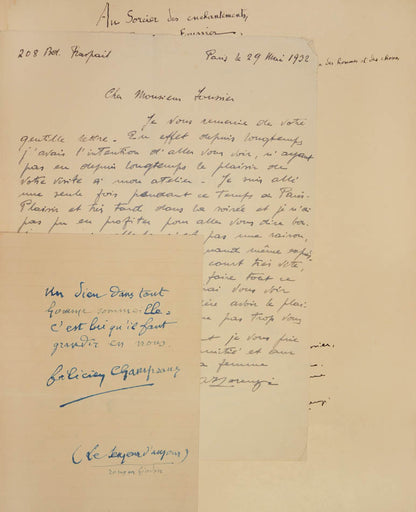 Au Sorcier des enchantements,
Fousnier
208 Bd. Raspail
Paris le 29 Mai 1932
des hommes et des choses
Cher Monsieur Fousnier
Je vous remercie de votre
gentille lettre. En effet depuis longtemps
j'avais l'intention d'aller vous voir, n'ayant
pas eu depuis longtemps le plaisir de
votre visite à mon atelier. Je suis allé
une seule fois pendant ce temps de Paris-
Plaisirs et très tard dans la soirée et je n'ai
pas pu en profiter pour aller vous dire bon.
pas une raison,
quand même
court très vite,
faire tout ce
vous voir
avoir le plai-
pas trop vous
et je vous prie
amitié et aux
femme
Un Dieu dans tout
homme sommeille,
c'est lui qu'il faut
grandir en nous.
Félicien Champsaur
(Le Semeur d'amour)
roman hindou